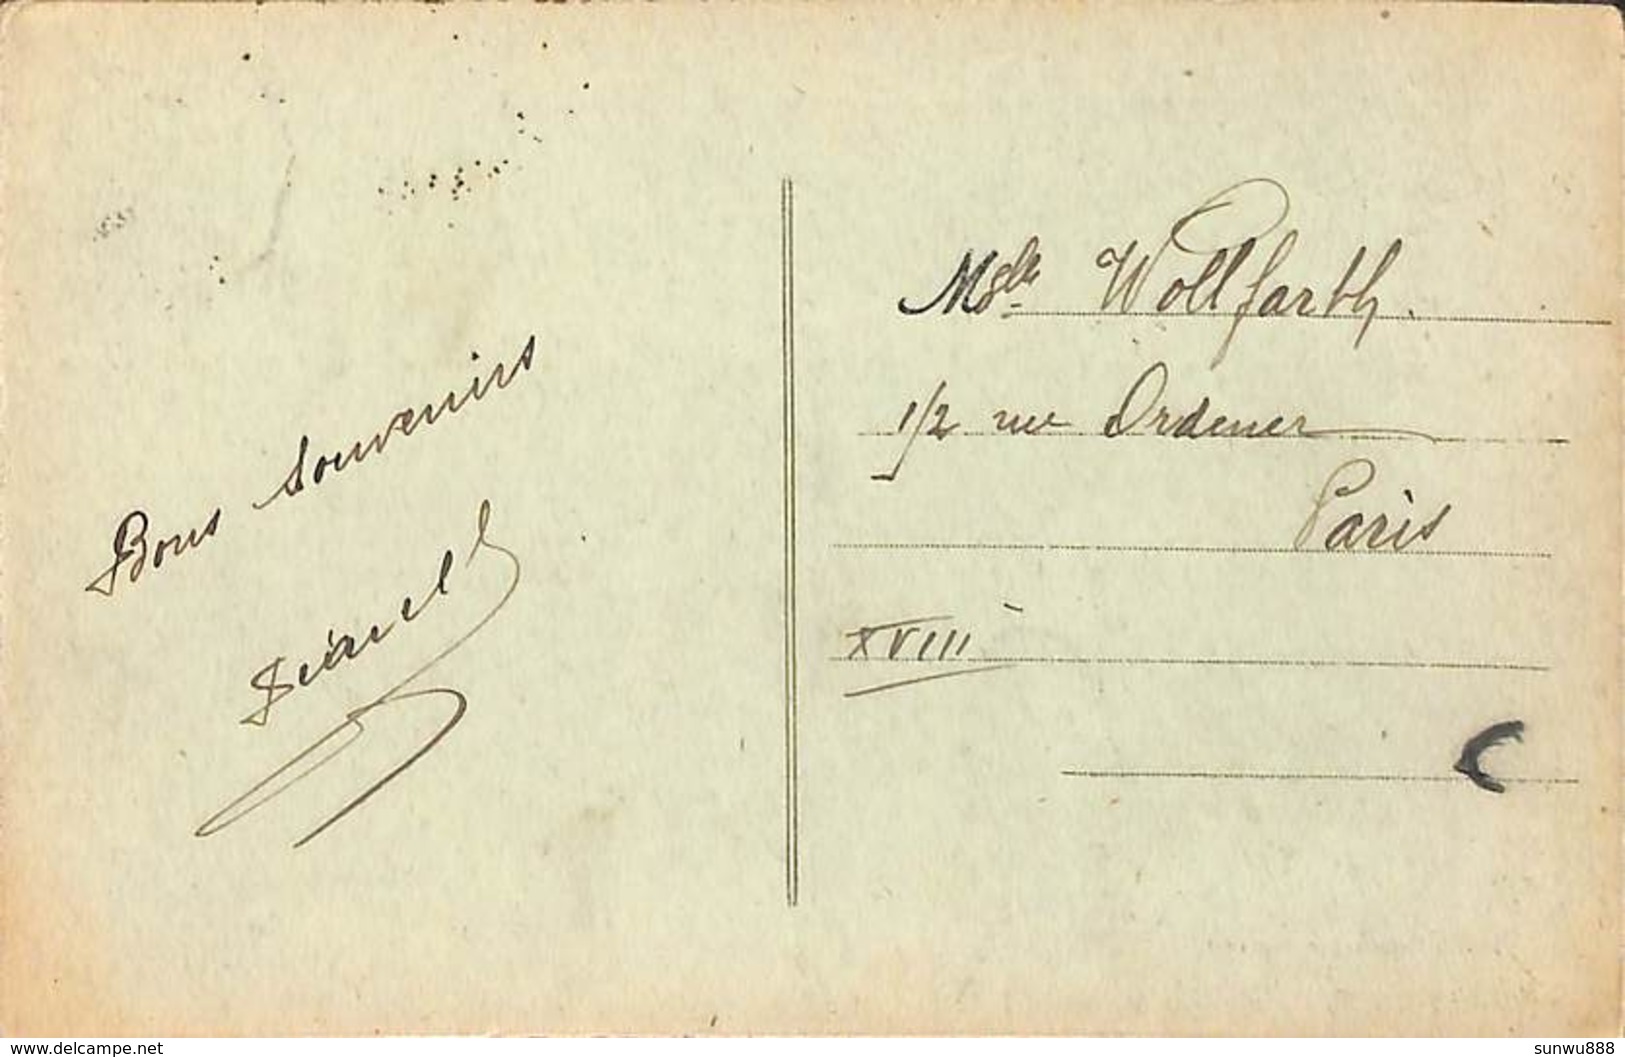 Bons Souvenirs
Mlle Wollfarth.
1/2 rue Ordener
Paris
XVIII
www.delcampe.net
sunwu888